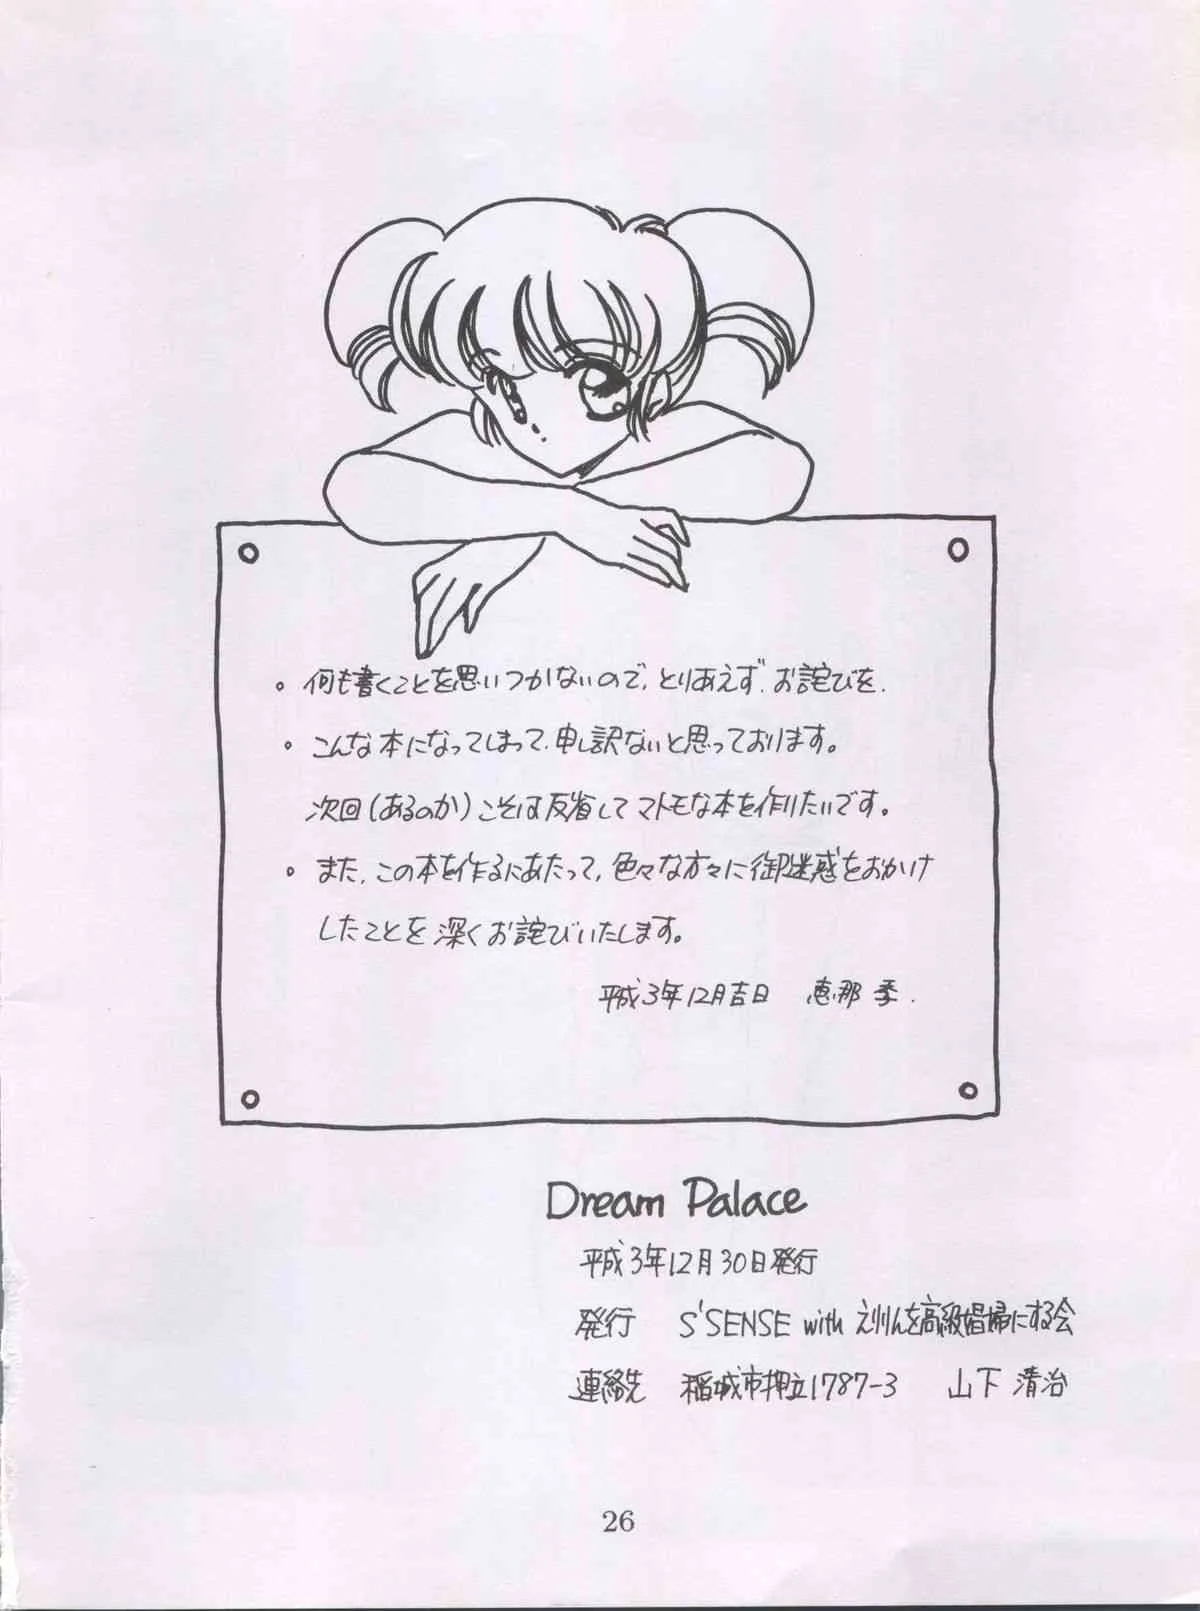 。何も書くことを思いつかないので、とりあえず、お詫びを、
。こんな本になってしまって、申し訳ないと思っております。
次回(あるのか)こそは反省してマトモな本を作りたいです。
。また、この本を作るにあたって、色々な方々に御迷惑をおかけ
したことを深くお詫びいたします。
平成3年12月吉日 恵那 季.
Dream Palace
平成3年12月30日発行
発行 S'SENSE with えりりんを高級娼婦にする会
連絡先 稲城市押立1787-3 山下 清治
26